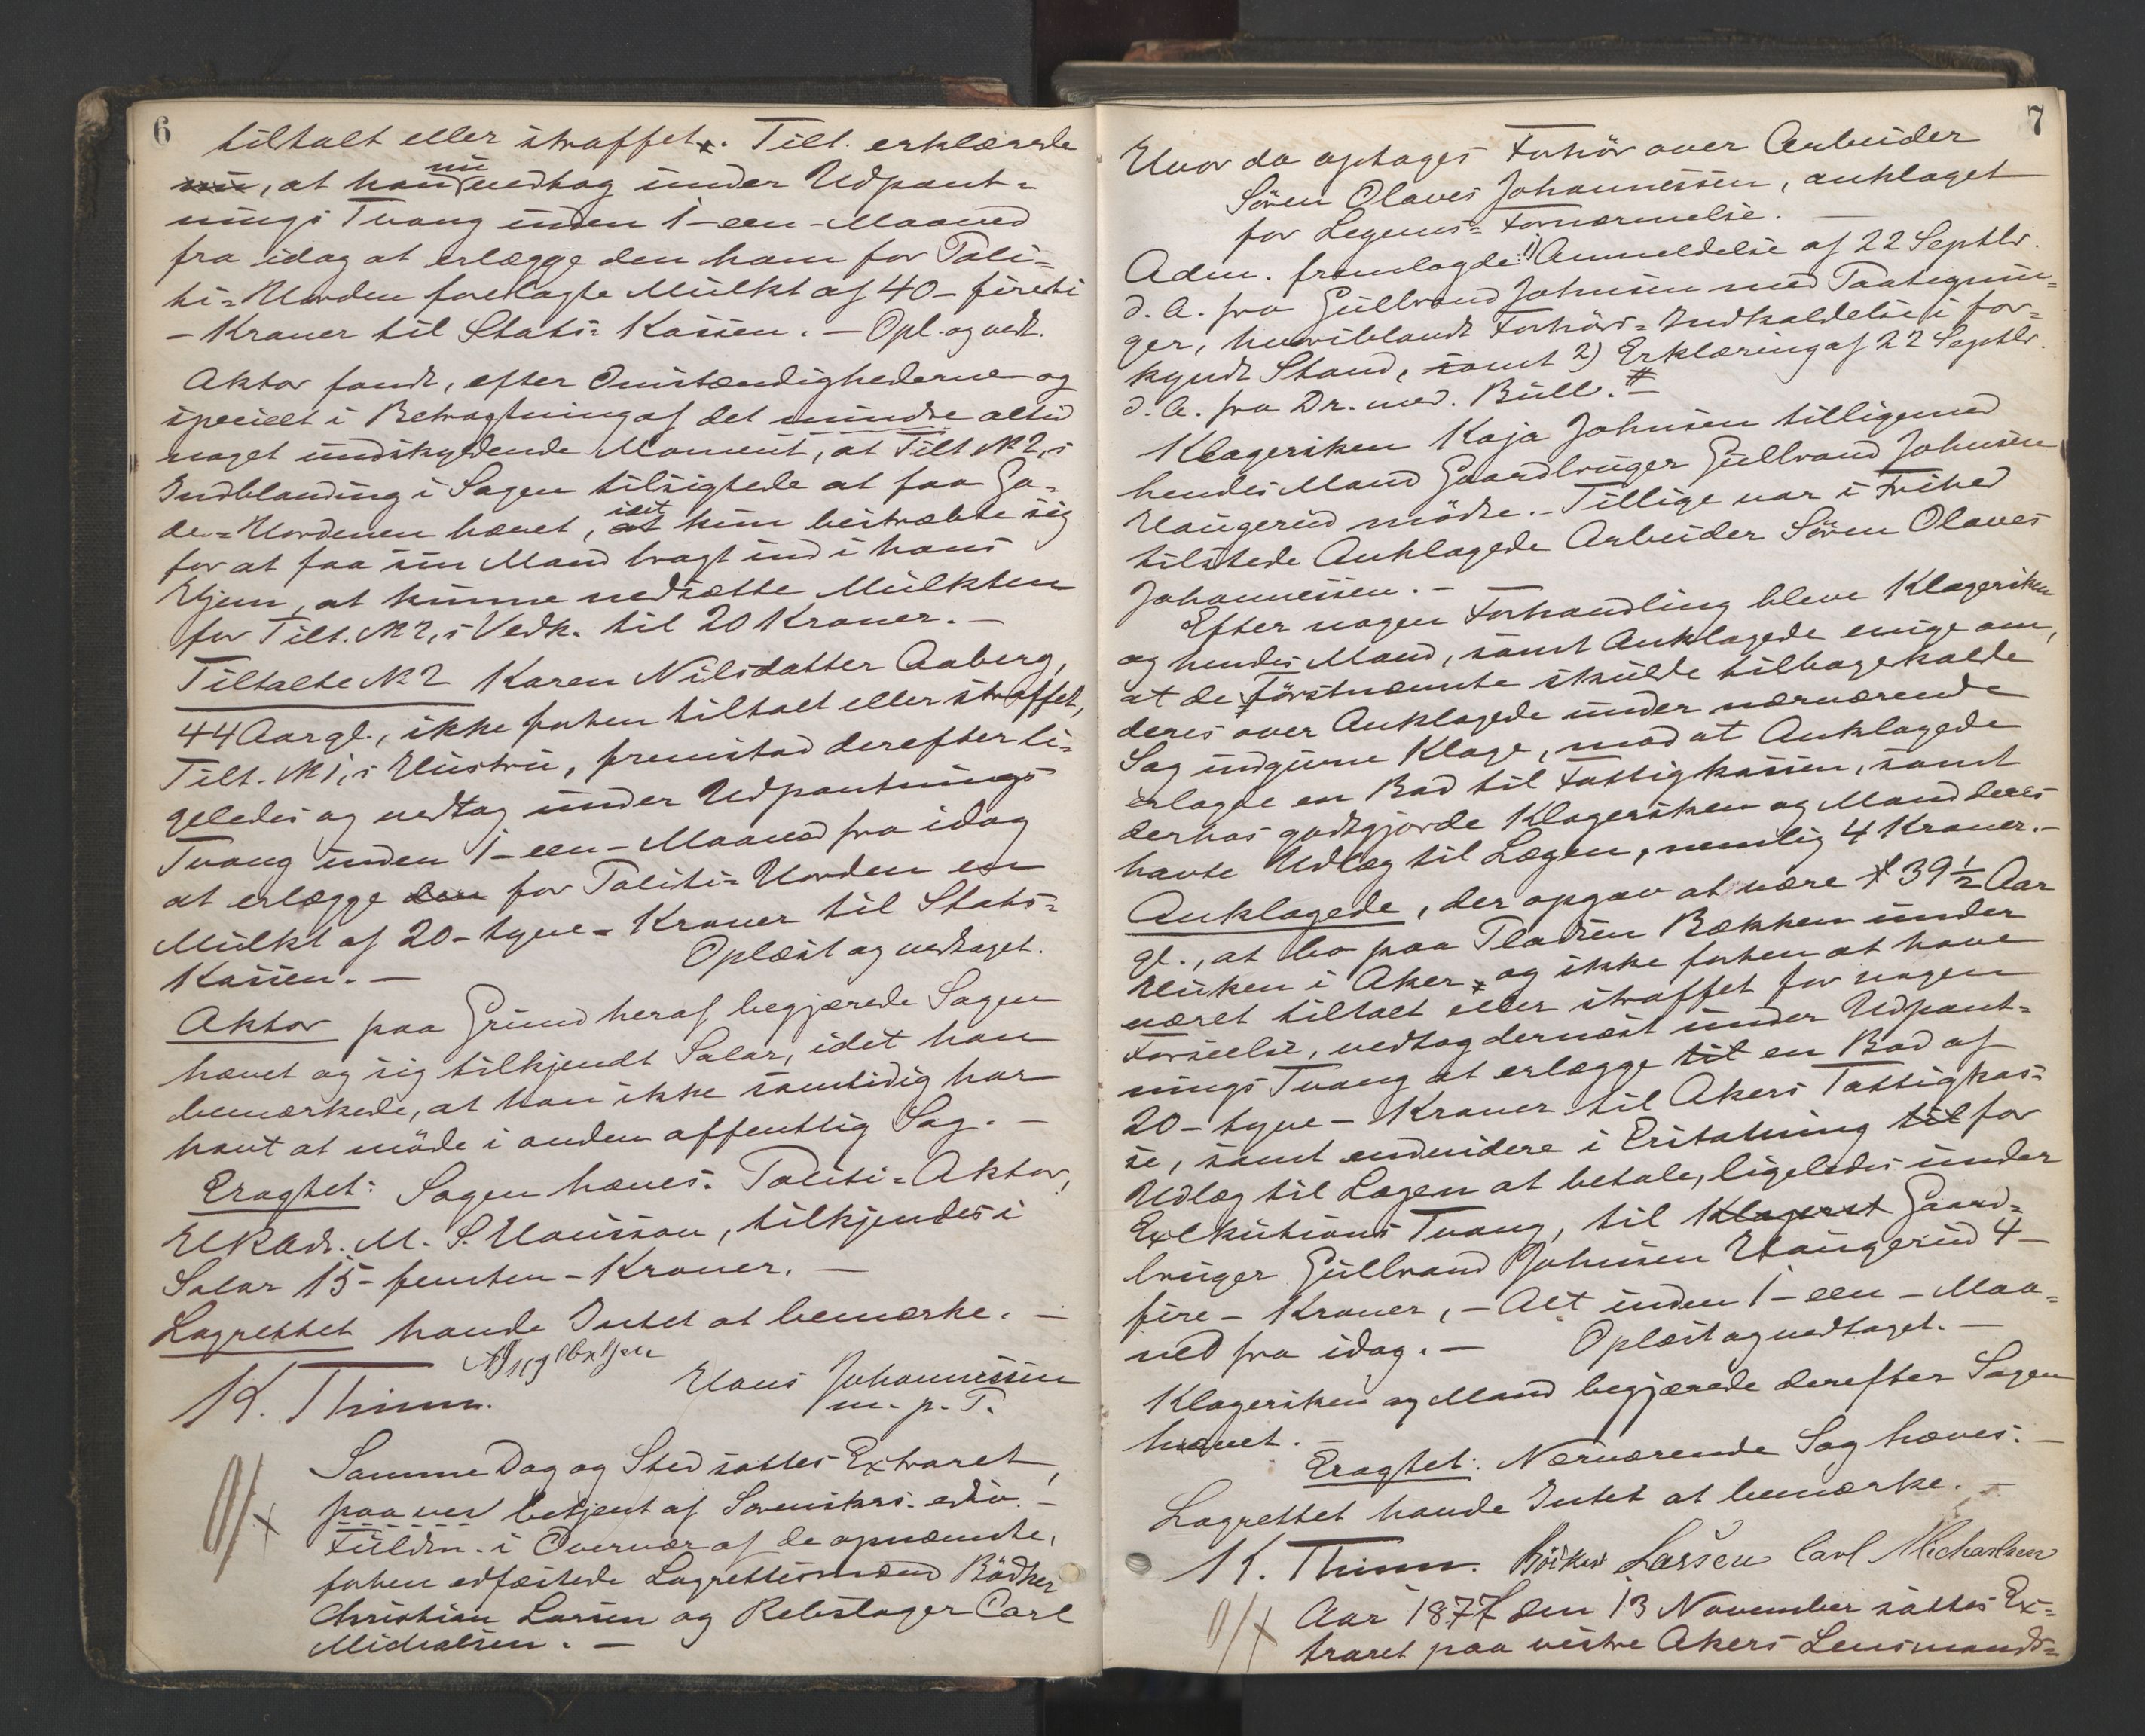 6
tiltalt eller straffet. Tilt. erklærede
nu, at han nu vedtog under Udpant-
nings Tvang inden 1 - een - Maaned
fra idag at erlægge den ham for Poli-
ti-Uorden forelagte Mulkt af 40 - fireti
- Kroner til Stats-Kassen. - Opl. og vedt.
Aktor fandt, efter Omstændighederne og
specielt i Betragtning af det mindre altid
noget undskyldende Moment, at Tilt. No 2,s
Indblanding i Sagen tilsigtede at faa Ga-
de-Uordenen hævet, idet at hun bestræbte sig
for at faa sin Mand bragt ind i hans
Hjem, at kunne nedsætte Mulkten
for Tilt. No 2,s Vedk. til 20 Kroner. -
Tiltalte No 2 Karen Nilsdatter Aaberg,
44 Aar gl., ikke forhen tiltalt eller straffet,
Tilt. No 1,s Hustru, fremstod derefter li-
geledes og vedtog under Udpantnings
Tvang inden 1 - een - Maaned fra idag
at erlægge den for Politi-Uorden en
Mulkt af 20 - tyve - Kroner til Stats-
Kassen. - Oplæst og vedtaget.
Aktor paa Grund heraf begjærede Sagen
hævet og sig tilkjendt Salær, idet han
bemærkede, at han ikke samtidig har
havt at møde i anden offentlig Sag. -
Eragtet: Sagen hæves. Politi-Aktor,
M. S. Hansson, tilkjendes i
Salær 15 - femten - Kroner. -
Lagrettet havde Intet at bemærke. -
K. Thinn. Hans Johannessen
m. p. P.
Samme Dag og Sted sattes Extraret,
paa ved betjent af Sorenskr. edsv. -
Fuldm. i Overvær af de opnævnte,
forhen edfæstede Lagrettesmænd Bødker
Christian Larsen og Rebslager Carl
Michalsen. -
7
Hvor da optages Forhør over Arbeider
Søren Olaves Johannessen, anklaget
for Legems-Fornærmelse. -
Adm. fremlagde: 1) Anmeldelse af 22 Septbr.
d. A. fra Gulbrand Johnsen med Paategnin-
ger, hvoriblandt Forhørs-Indkaldelse i for-
kyndt Stand, samt 2) Erklæring af 22 Septbr.
d. A. fra Dr. med. Bull. #-
Klagersken Kaja Johnsen tilligemed
hendes Mand Gaardbruger Gulbrand Johnsen
Haugerud mødte. - Tillige var i Frihed
tilstede Anklagede Arbeider Søren Olaves
Johannessen. -
Efter nogen Forhandling bleve Klagersken
og hendes Mand, samt Anklagede enige om,
at de førstnævnte skulde tilbagekalde
deres over Anklagede under nærværende
Sag indgivne Klage, mod at Anklagede
erlagde en Bod til Fattigkassen, samt
derhos godtgjorde Klagersken og Mand deres
havte Udlæg til Lægen, nemlig 4 Kroner. -
Anklagede, der opgav at være 39 ½ Aar
gl., at bo paa Pladsen Bækken under
Huken i Aker, og ikke forhen at have
været tiltalt eller straffet for nogen
Forseelse, vedtog dernæst under Udpant-
nings Tvang at erlægge til en Bod af
20 - tyve - Kroner til Akers Fattigkas-
se, samt endvidere i Erstatning til for
Udlæg til Lægen at betale, ligeledes under
Exekutions Tvang, til Klagerst Gaard-
bruger Gulbrand Johnsen Haugerud 4 -
fire - Kroner, - Alt inden 1 - een - Maa-
ned fra idag. - Oplæst og vedtaget. -
Klagersken og Mand begjærede derefter Sagen
hævet. -
Eragtet: Nærværende Sag hæves. -
Lagrettet havde Intet at bemærke. -
K. Thinn. Larsen Carl Michaelsen
Aar 1877 den 13 November sattes Ex-
traret paa vestre Akers Lensmands-